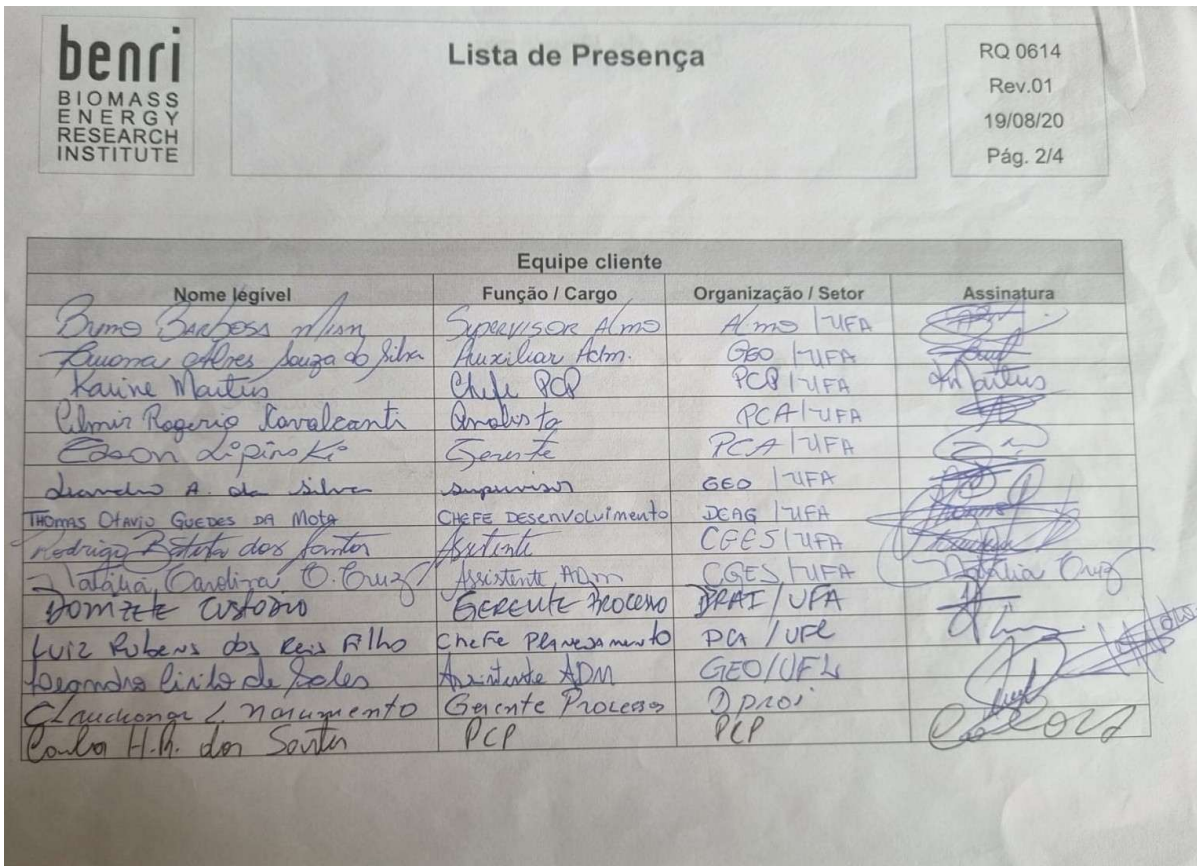 benri
BIOMASS
ENERGY
RESEARCH
INSTITUTE
Lista de Presença
RQ 0614
Rev.01
19/08/20
Pág. 2/4
Equipe cliente
Nome legível Função / Cargo Organização / Setor Assinatura
Bruno Barbosa Supervisor Almo Almo / UFA
Alves Souza da Silva Auxiliar Adm. GEO / UFA
Karine Martins Chefe PCP PCP / UFA Martins
Rogerio Cavalcanti Analista PCA / UFA
Edson Lipinski Gerente PCA / UFA
Leandro A. da Silva supervisor GEO / UFA
THOMAS OTAVIO GUEDES DA MOTA CHEFE DESENVOLVIMENTO DCAG / UFA
Rodrigo Batista dos Santos CGES / UFA
Natália Carolina O. Cruz Assistente Adm CGES / UFA Natália Cruz
CUSTODIO GERENTE PROCESSO / UFA
LUIZ RUBENS dos Reis Filho Chefe PLANEJAMENTO PCA /
de Sales Assistente ADM GEO /
Gerente Processos
H.R. dos Santos PCP PCP